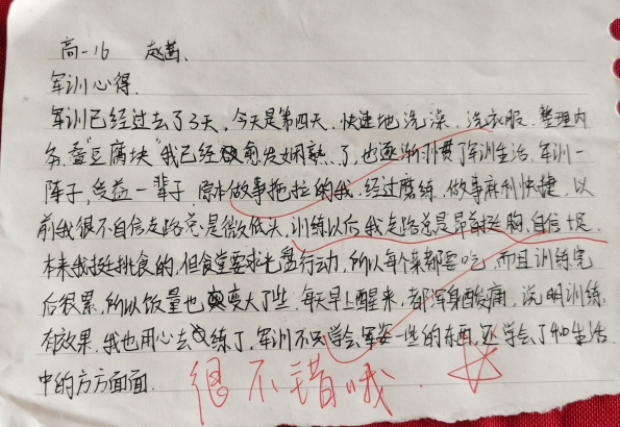 高一16 赵茜.
军训心得.
军训已经过去了3天,今天是第四天,快速地洗澡、洗衣服、整理内
务,叠“豆腐块”我已经愈发娴熟了,也逐渐习惯了军训生活.军训一
阵子,受益一辈子.原本做事拖拉的我,经过磨练,做事麻利快捷,以
前我很不自信走路总是微微低头,训练以后,我走路总是昂首挺胸,自信十足.
本来我挺挑食的,但食堂要求光盘行动,所以每个菜都要吃,而且训练完
后很累,所以饭量也变大了些.每天早上醒来,都浑身酸痛,说明训练
有效果.我也用心去练了,军训不只学会军姿一些的东西,还学会了生活
中的方方面面.
很不错哦.